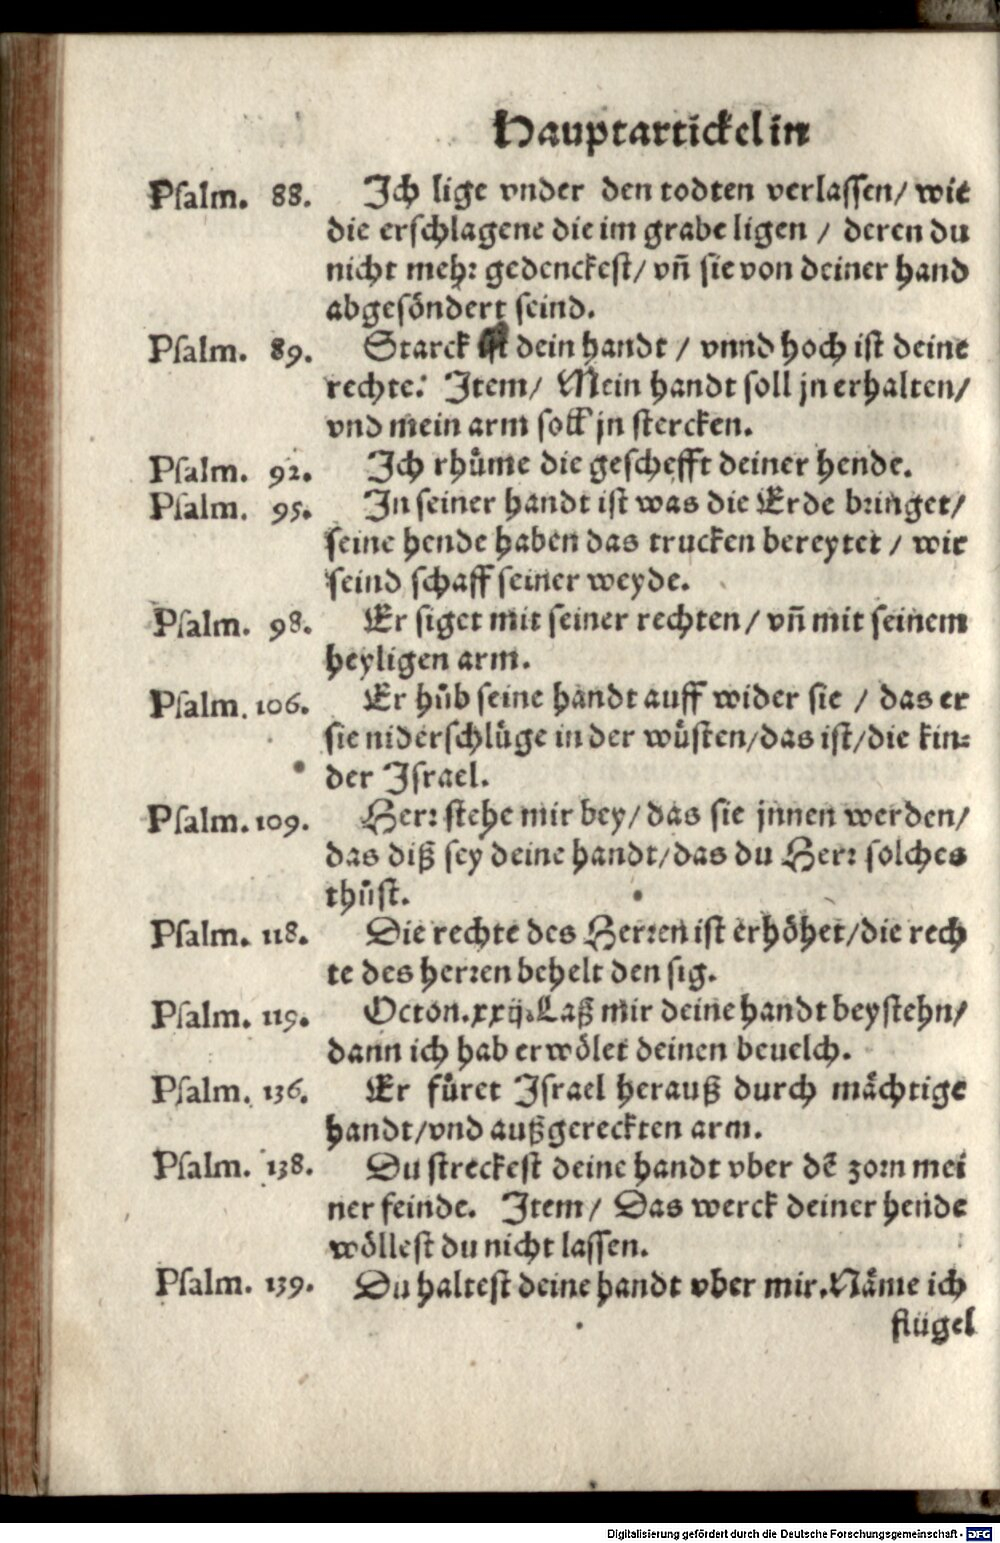 Hauptartickel in
Psalm. 88. Ich lige vnder den todten verlassen/ wie
die erschlagene die im grabe ligen / deren du
nicht mehr gedenckest/ vñ sie von deiner hand
abgesöndert seind.
Psalm. 89. Starck ist dein handt / vnnd hoch ist deine
rechte. Item/ Mein handt soll jn erhalten/
vnd mein arm soll jn stercken.
Psalm. 92. Ich rhůme die geschefft deiner hende.
Psalm. 95. In seiner handt ist was die Erde bringet/
seine hende haben das trucken bereytet / wir
seind schaff seiner weyde.
Psalm. 98. Er siget mit seiner rechten / vñ mit seinem
heyligen arm.
Psalm. 106. Er hůb seine handt auff wider sie / das er
sie niderschlůge in der wůsten/das ist/die kin⸗
der Israel.
Psalm. 109. Herr stehe mir bey/ das sie jnnen werden/
das diß sey deine handt/das du Herr solches
thůst.
Psalm. 118. Die rechte des Herren ist erhöhet/die rech
te des herren behelt den sig.
Psalm. 119. Octon.xxij.Laß mir deine handt beystehn/
dann ich hab erwölet deinen beuelch.
Psalm. 136. Er fůret Israel herauß durch mächtige
handt/vnd außgereckten arm.
Psalm. 138. Du streckest deine handt vber dẽ zorn mei
ner feinde. Item/ Das werck deiner hende
wöllest du nicht lassen.
Psalm. 139. Du haltest deine handt vber mir. Näme ich
flügel
Digitalisierung gefördert durch die Deutsche Forschungsgemeinschaft - DFG